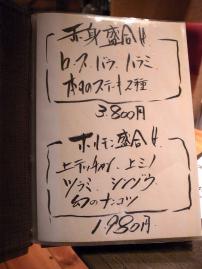 赤身盛合せ
ロース バラ ハラミ
本日のステーキ2種
3,800円
ホルモン盛合せ
上テッチャン 上ミノ
ツラミ シンゾウ
幻のナンコツ
1,980円